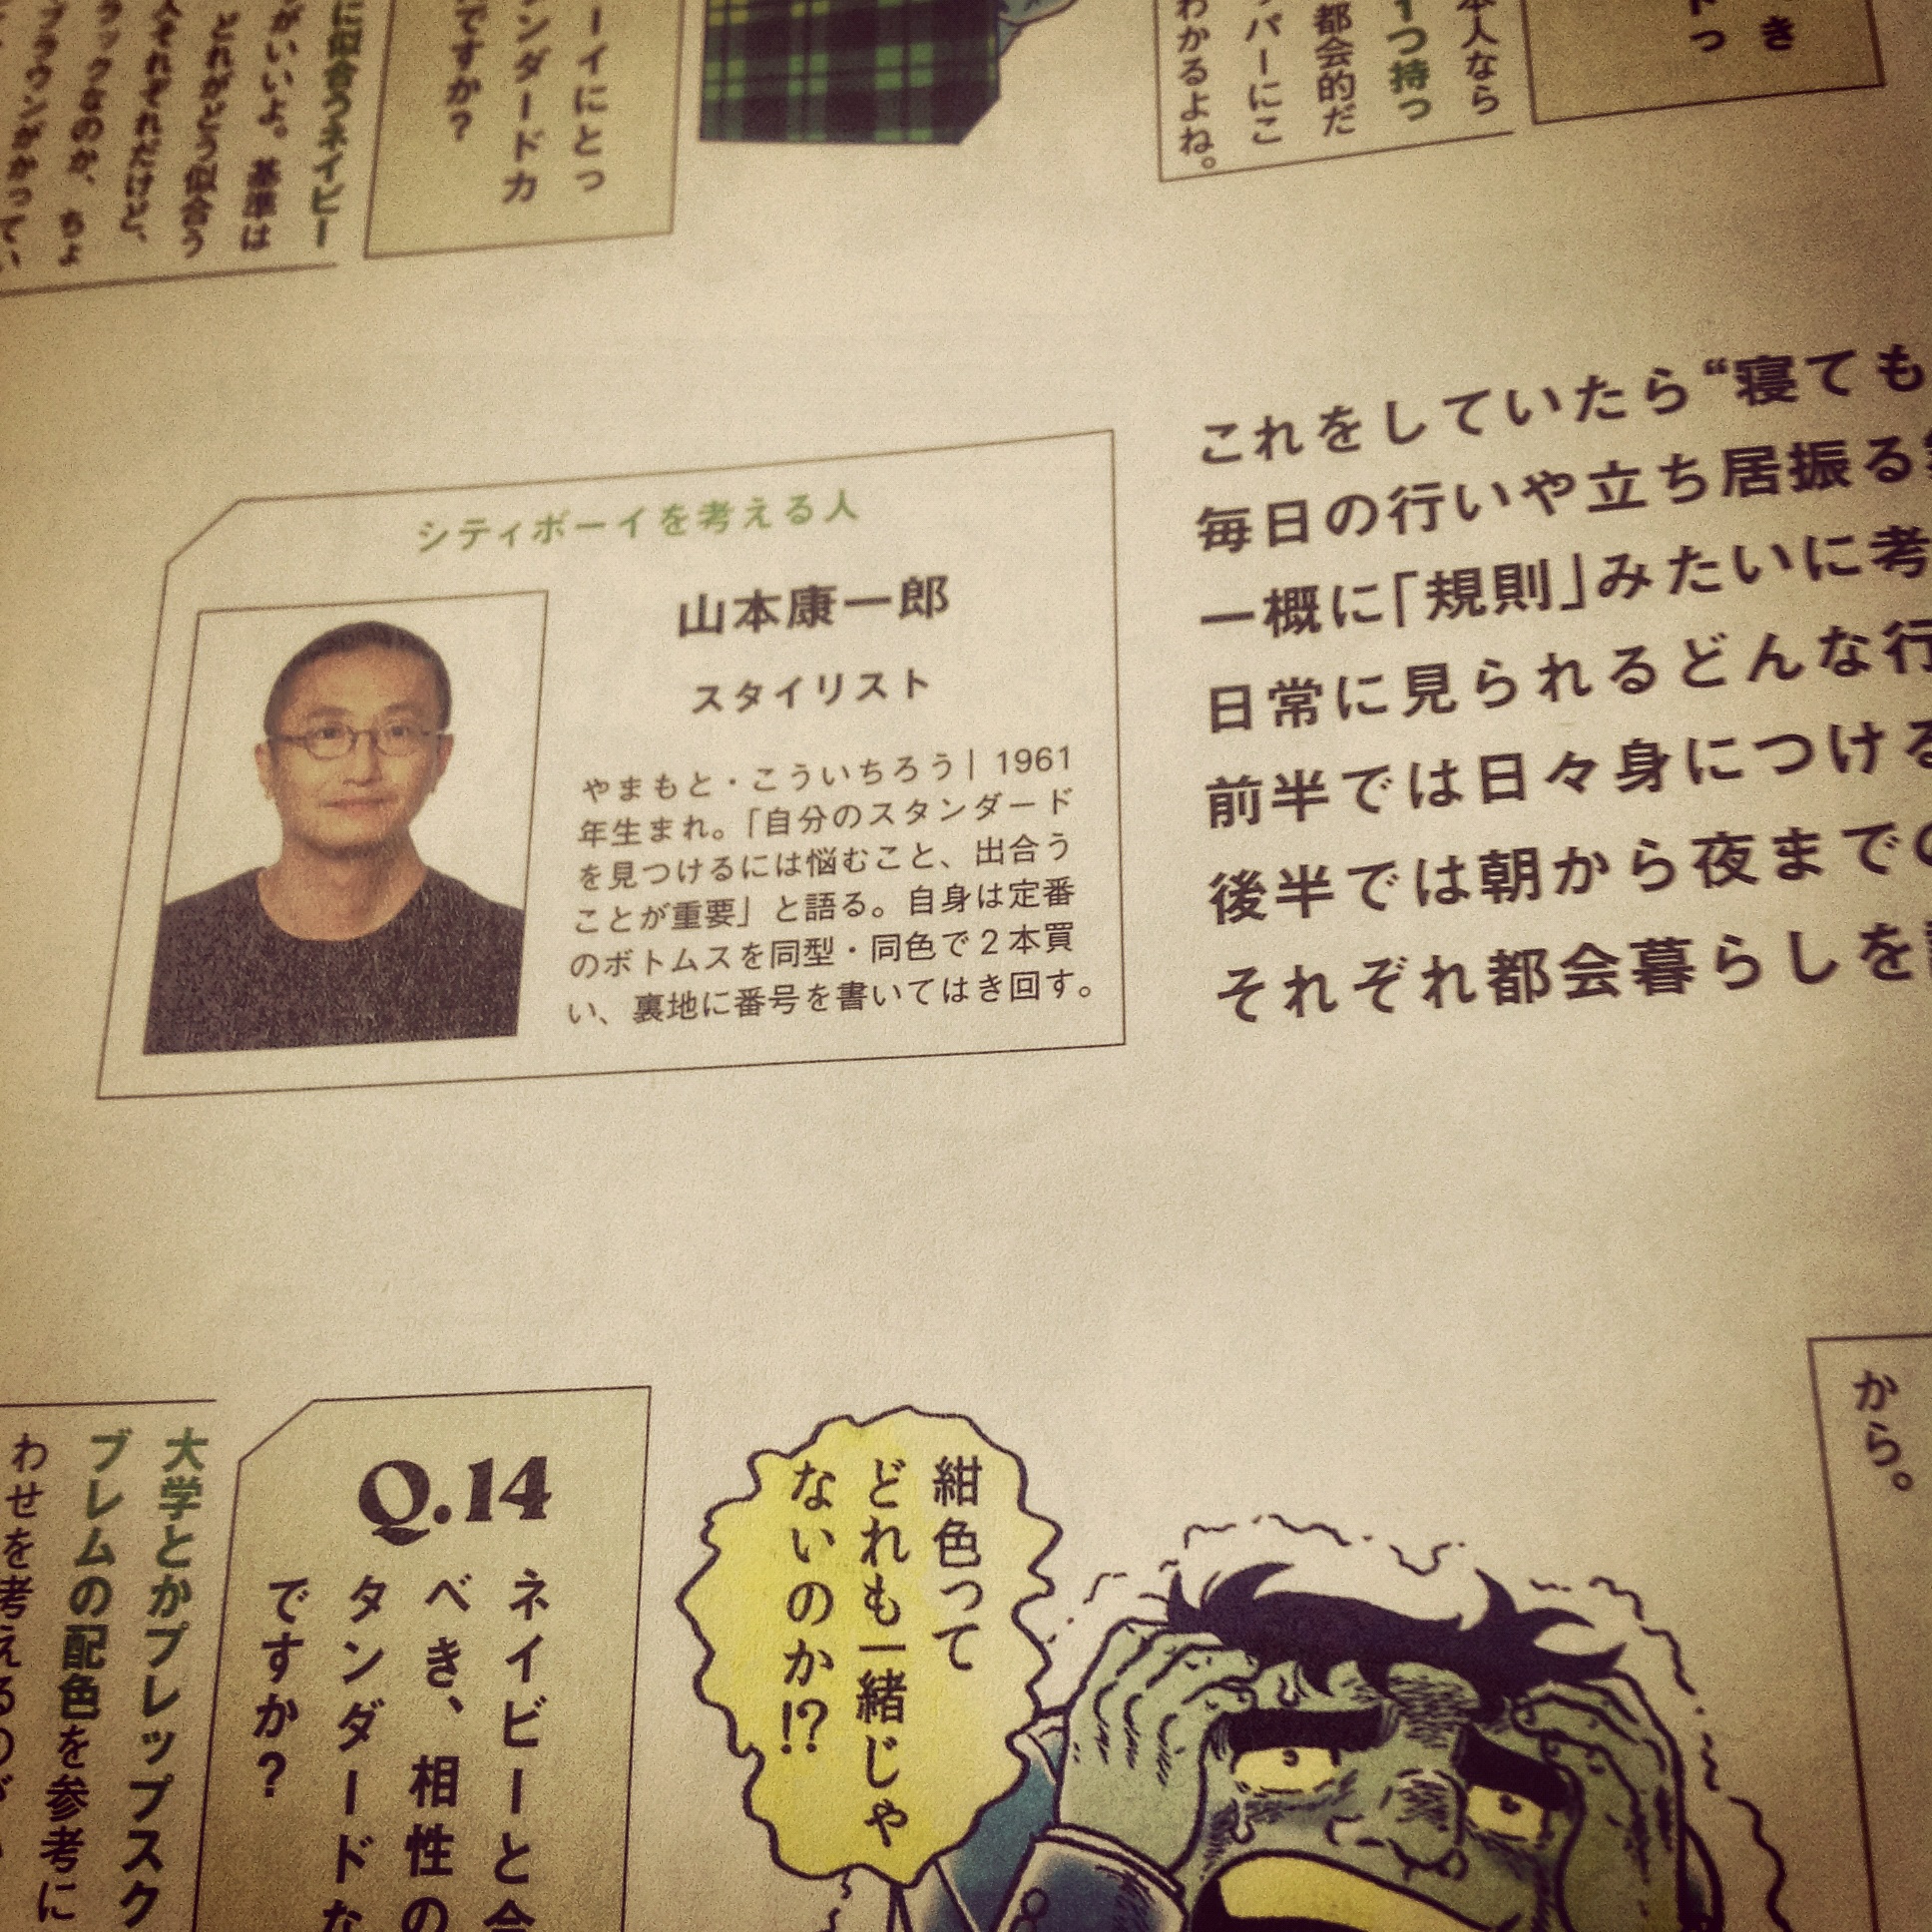 き
トっ
本人なら
1つ持っ
都会的だ
パーにこ
わかるよね。
ーイにとっ
ンダードカ
ですか?
に似合うネイビー
がいいよ。基準は
とれがどう似合う
人それぞれだけど、
ラックなのか、ちょ
ブラウンがかってい
シティボーイを考える人
山本康一郎
スタイリスト
やまもと・こういちろう| 1961
年生まれ。「自分のスタンダード
を見つけるには悩むこと、出合う
ことが重要」と語る。自身は定番
のボトムスを同型・同色で2本買
い、裏地に番号を書いてはき回す。
これをしていたら“寝ても
毎日の行いや立ち居振る
一概に「規則」みたいに考
日常に見られるどんな行
前半では日々身につける
後半では朝から夜までの
それぞれ都会暮らしを
から。
紺色って
どれも一緒じゃ
ないのか!?
Q.14
ネイビーと合
べき、相性の
タンダードな
ですか?
大学とかプレップスク
ブレムの配色を参考に
わせを考えるのが